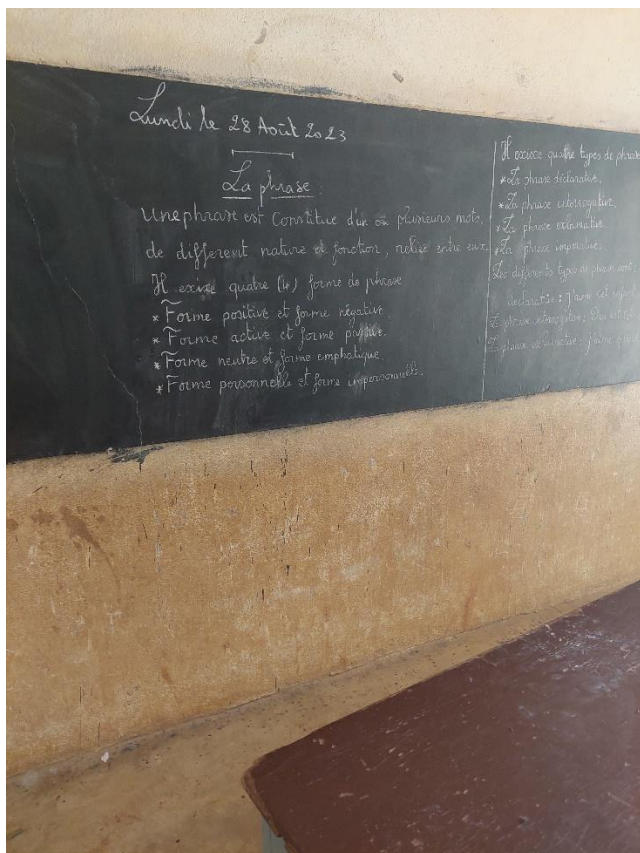 Lundi le 28 Août 2023
La phrase :
Une phrase est Constitue d'un ou plusieurs mots.
de different nature et fonction, reliée entre eux.
Il existe quatre (4) forme de phrase
* Forme positive et forme négative
* Forme active et forme passive.
* Forme neutre et forme emphatique.
* Forme personnelle et forme impersonnelle.
Il existe quatre types de phrase
* La phrase déclarative.
* La phrase interrogative.
* La phrase exlamative
* La phrase imperative.
Les differents types de phrase sont
declarative : J'aime cet
La phrase interrogative : Qui est
La phrase exclamative : j'aime